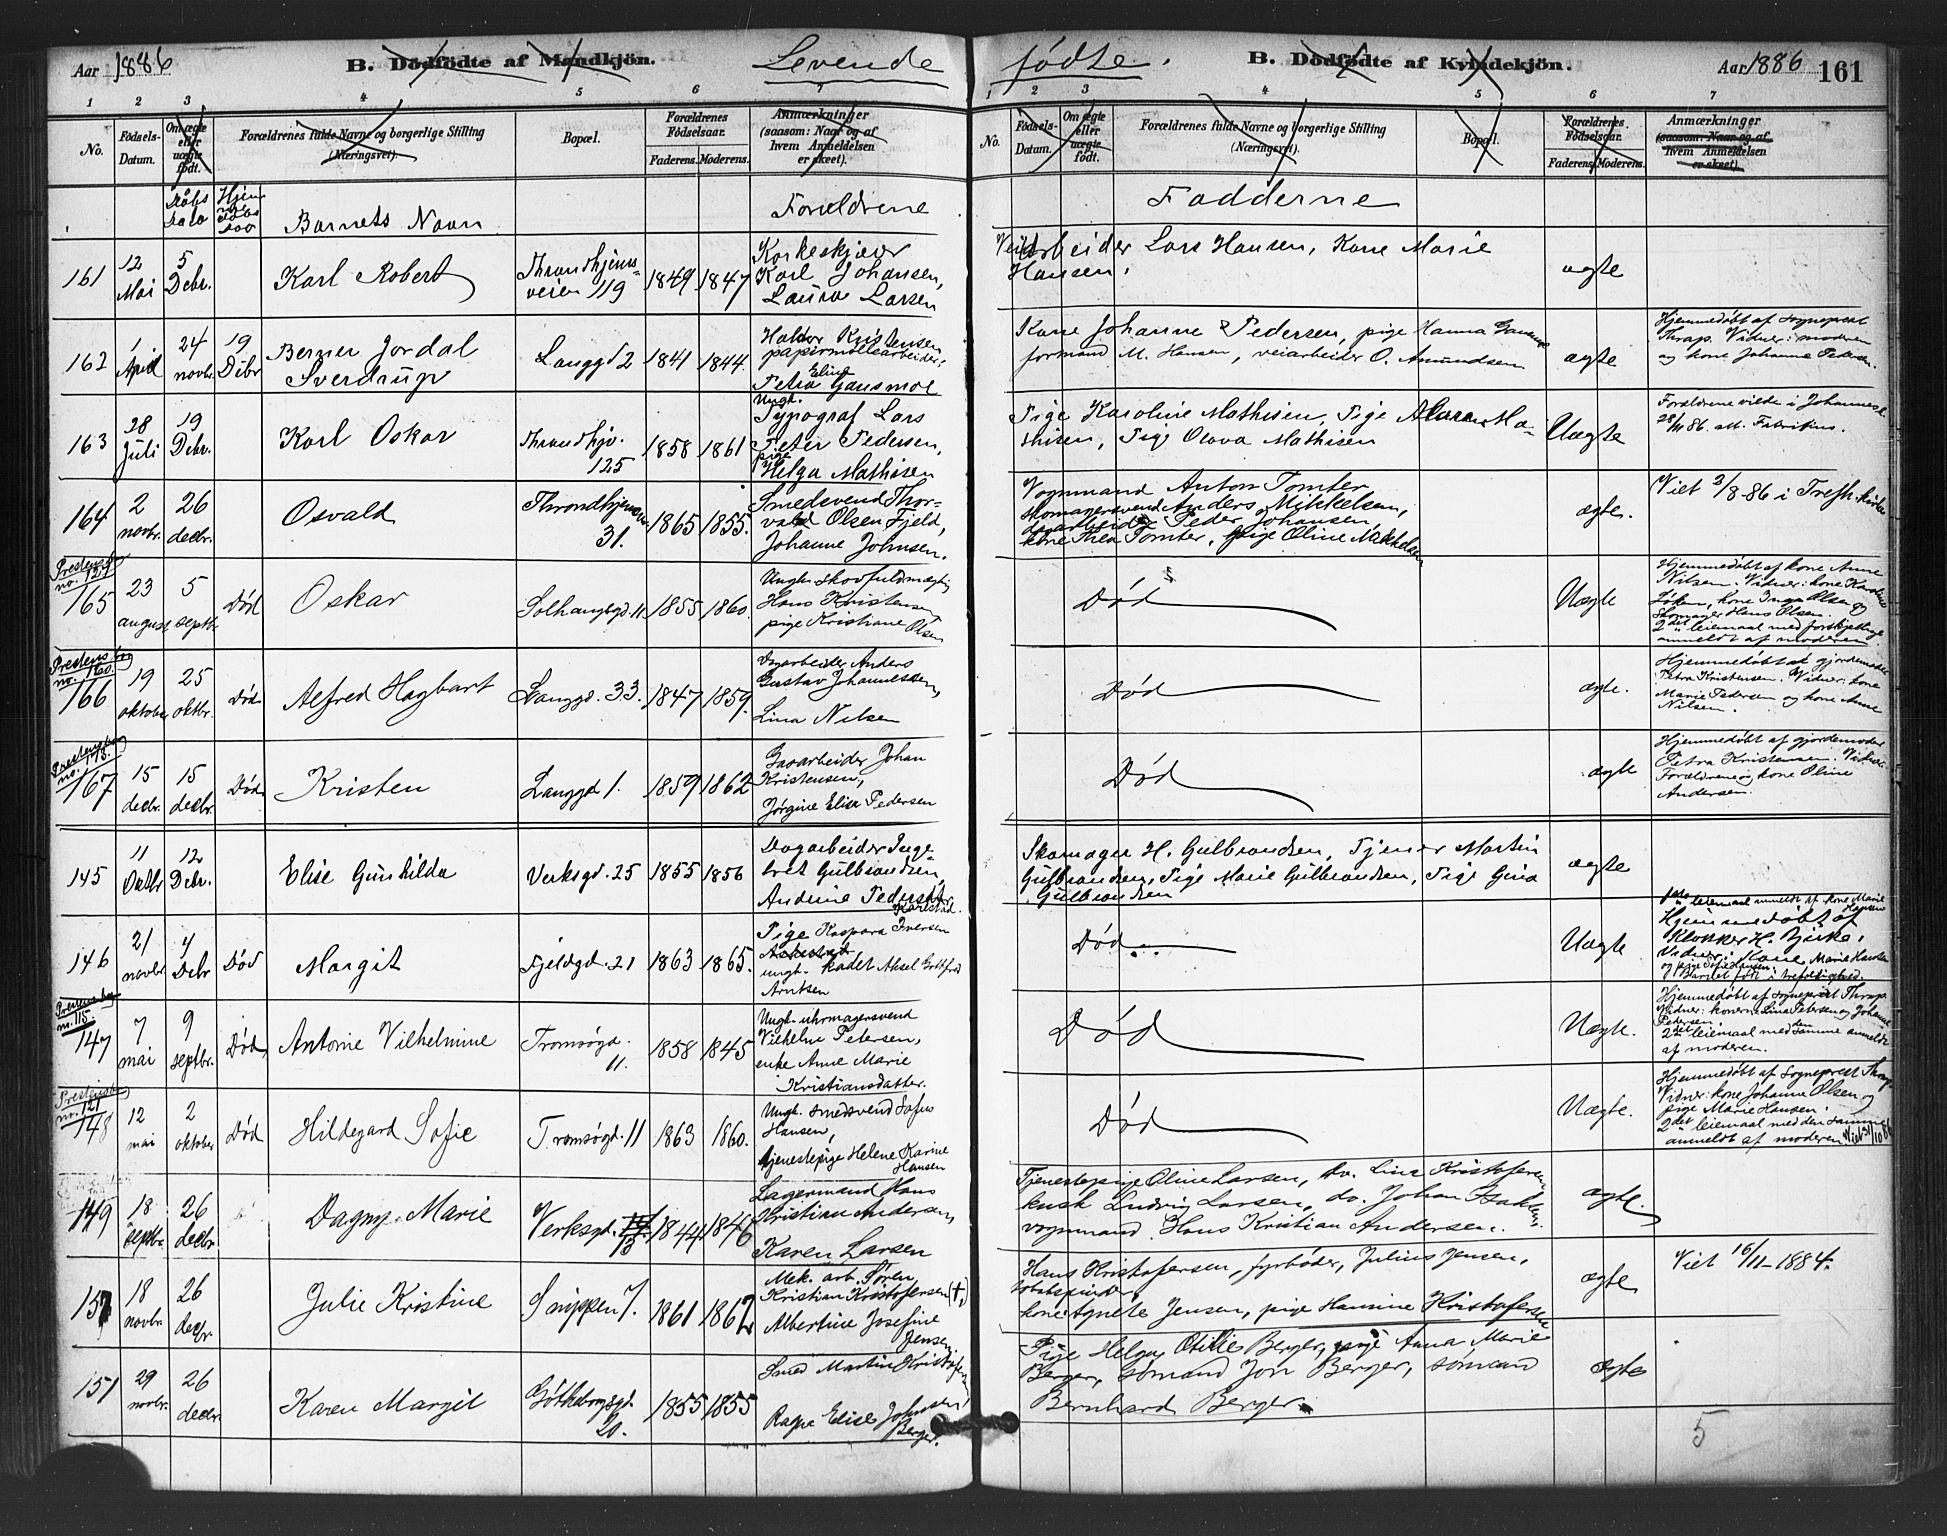 Aar 1886 B. Dödfödte af Mandkjön. Levende
fødte. B. Dödfödte af Kvindekjön. Aar 1886 161
1 2 3 4 5 6 7
1 2 3 4 5 6 7
No. Födsels-Datum. Om ægte eller uægte födt. Forældrenes fulde Navne og borgerlige Stilling (Næringsvei). Bopæl. Forældrenes Födselsaar. Faderens. Moderens. Anmærkninger (saasom: Naar og af hvem Anmeldelsen er skeet).
No. Födsels-Datum. Om ægte eller uægte födt. Forældrenes fulde Navne og borgerlige Stilling (Næringsvei). Bopæl. Forældrenes Födselsaar. Faderens. Moderens. Anmærkninger (saasom: Naar og af hvem Anmeldelsen er skeet).
Døbs Dato Hjemmedøbs Dato Barnets Navn Forældrene Fadderne
161 12 Mai 5 Debr. Karl Robert Throndhjemsveien 119 1849 1847 Korkeskjærer Karl Johansen, Laura Larsen
Veiarbeider Lars Hansen, Kone Marie Hansen. ægte
162 1 April 24 novbr. 19 Dibr Berner Jordal Sverdrup Langgd 2 1841 1844. Halvor Kristensen papirmøllearbeider, Petra Eline Gausmoe
Kone Johanne Pedersen, pige Hanna formand M. Hansen, veiarbeider O. Amundsen ægte Hjemmedøbt af sogneprest Thrap. Vidner: moderen og kone Johanne Petersen.
163 28 Juli 19 Debr. Karl Oskar Throndhjv. 125 1858 1861 Ungk. Typograf Lars Peter Pedersen, pige Helga Mathisen
Pige Karoline Mathisen, Pige Mathisen, Pige Olava Mathisen Uægte Forældrene viede i Johannesk. 28/11 86.
164 2 novbr. 26 decbr. Osvald Throndhjemsv. 31. 1865 1855. Smedsvend Thorvald Olsen Fjeld, Johanne Johnsen.
Vognmand Anton Tomter skomagersvend Anders Mikkelsen, dagarbeider Peder Johansen, kone Thea Tomter, pige Oline Mikkelsen ægte. Viet 3/8-86 i Trefh.kirke
Prestens bog no. 129 165 23 august 5 septbr Død Oskar Solhauggd. 11 1855 1860. Ungk. skovfuldmægtig Hans Kristensen pige Kristiane Olsen
Død Uægte Hjemmedøbt af kone Anne Nilsen. Vidner: kone Karoline kone Inga Olsen og Skomager Hans Olsen. 2det leiemaal med forskjellige anmeldt af moderen.
Prestens bog no. 160. 166 19 oktober 25 oktbr. Død Alfred Hagbart Langgd. 33. 1847 1859. Dagarbeider Anders Gustav Johannessen, Lina Nilsen
Død ægte. Hjemmedøbt af gjordemoder Petra Kristensen. Vidner: kone Marie Pedersen og kone Anne Nilsen.
Prestens bog no. 173. 167 15 decbr. 15 decbr. Død Kristen Langgd 1. 1859 1862 Gasarbeider Johan Kristensen, Jørgine Elisa Pedersen
Død ægte Hjemmedøbt af gjordemoder Petra Kristensen. Vidner: Forældrene og kone Oline Andersen.
145 11 Oktbr 12 Debr. Elise Gunhilda Verksgd. 25 1855 1856 Dagarbeider Ingebret Gulbrandsen, Andrine Pedersdtr Karlstad.
Skomager H. Gulbrandsen, Tjener Martin Gulbrandsen, Pige Marie Gulbrandsen, Pige Gina Gulbrandsen ægte
146 21 novbr. 4 Debr Død Margit Fjeldgd. 21 1863 1865. Pige Kaspara Iversen ungk. kadet Aksel Gottfred Arntsen
Død. Uægte 1ste leiemaal anmeldt af kone Marie Hansen Hjemmedøbt af Klokker H. Bjerke. Vidner: Kone Marie Hansen og pige Sofie Hansen. Barnet født i
Prestens bog nr. 115. 147 7 mai 9 septbr. Død Antonie Vilhelmine Tromsøgd. 11. 1858 1845 Ungk. uhrmagersvend Vilhelm Petersen, enke Anne Marie Kristiansdatter.
Død Uægte. Hjemmedøbt af sogneprest Thrap. Vidner: konerne Lina Petersen og Johanne Pedersen 2det leiemaal med den samme anmeldt af moderen.
Prestens bog nr. 121 148 12 mai 2 oktober Død Hildegard Sofie Tromsøgd. 11 1863 1860. Ungk. smedsvend Sofus Hansen, tjenestepige Helene Karine Hansen
Død Uægte. Hjemmedøbt af Sogneprest Thrap. Vidner: kone Johanne Olsen og pige Marie Hansen. 2det leiemaal med den samme anmeldt af moderen Viet 31/10 86
149 18 septbr 26 decbr. Dagny Marie Verksgd. 13 1844 1846 Lagermand Hans Kristian Andersen, Karen Larsen
Tjenestepige Oline Larsen, do. Lina Kristofersen kusk Ludvig Larsen, do. Johan Isaksen. vognmand Hans Kristian Andersen. ægte.
150 18 novbr. 26 decbr. Julie Kristine Snippen 7. 1861 1862 Mek. arb. Søren Kristian Kristofersen (†), Albertine Josefine Jensen
Hans Kristofersen, fyrbøder, Julius Jensen, tobakspinder, kone Agnete Jensen, pige Hansine Kristofersen ægte Viet 16/11-1884.
151 29 novbr. 26 decbr. Karen Margit Gøtheborggd. 20. 1855 1855 Smed Martin Kristofersen Ragna Elise Johnsen Berger.
Pige Helga Otilie Berger, pige Anna Marie Berger, sømand Jon Berger, sømand Bernhard Berger. ægte
5